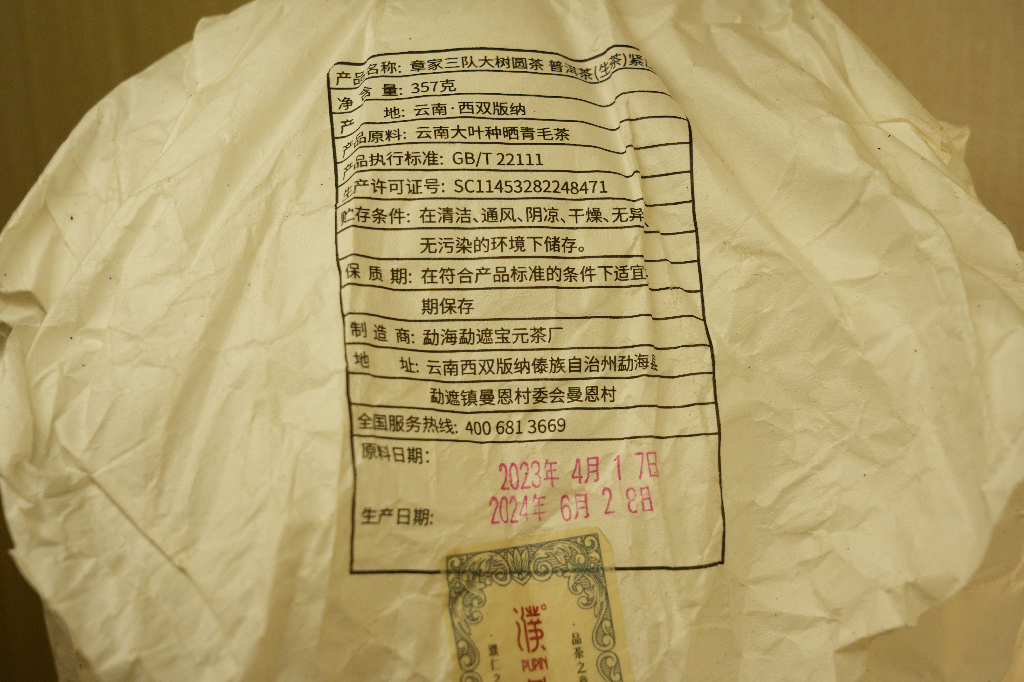 产品名称: 章家三队大树圆茶 普洱茶(生茶)紧
净 含 量: 357克
产 地: 云南·西双版纳
产品原料: 云南大叶种晒青毛茶
产品执行标准: GB/T 22111
生产许可证号: SC11453282248471
贮存条件: 在清洁、通风、阴凉、干燥、无异
无污染的环境下储存。
保 质 期: 在符合产品标准的条件下适宜
期保存
制 造 商: 勐海勐遮宝元茶厂
地 址: 云南西双版纳傣族自治州勐海
勐遮镇曼恩村委会曼恩村
全国服务热线: 400 681 3669
原料日期: 2023年 4月 1 7日
生产日期: 2024年 6月 2 8日
濮
PUPIN
·品茶之
·雅仁之